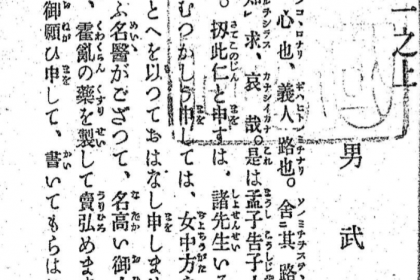 之上
男 武
心也、義人路也。舍其路
知レ求、哀哉。是は孟子告子
。扨此仁と申すは、諸先生い
むつかしう申しては、女中方
とへを以つておはなし申しま
ふ名醫がござつて、名高い御
、霍亂の藥を製して賣弘めま
御願ひ申して、書いてもらは